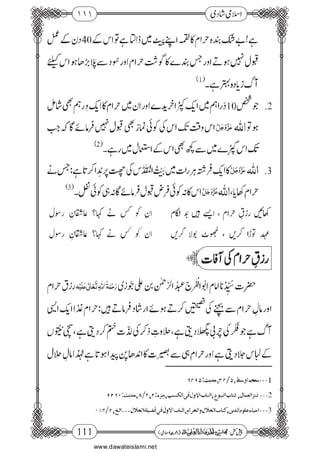 اسلامی شادی ۱۱۱
ہے! بے شک بندہ حرام کا لقمہ اپنے پیٹ میں ڈالتا ہے تو اس کے 40 دن کے عمل
قبول نہیں ہوتے اور جس بندے کا گوشت حرام اور سُود سے پلا بڑھا ہو اس کیلئے
آگ زیادہ بہتر ہے۔ (1)
2. جو شخص 10 درہم میں ایک کپڑا خریدے اور ان میں حرام کا ایک درہم بھی شامل
ہو تو اللہ عَزَّوَجَلَّ اس وقت تک اس کی کوئی نماز بھی قبول نہیں فرمائے گا جب تک
اس کپڑے میں سے کچھ بھی اس کے استعمال میں رہے۔ (2)
3. اللہ عَزَّوَجَلَّ کا ایک فرشتہ ہر رات بیتُ المقدَّس کی چھت پر ندا کرتا ہے: جس نے
حرام کھایا، اللہ عَزَّوَجَلَّ اس کا نہ کوئی فرض قبول فرمائے گا نہ ہی کوئی نفل۔ (3)
کھائیں رزقِ حرام ، ایسے ہیں بد لگام ان کو کس نے کہا؟ عاشقانِ رسول
عہد توڑا کریں ، جھوٹ بولا کریں ان کو کس نے کہا؟ عاشقانِ رسول
رزقِ حرام کی آفات
حضرت سَیِّدُنا امام ابوالفَرَج عبدُالرحمٰن بن علی جوزی رَحْمَۃُ اللہِ تَعَالٰی عَلَیْہ رزقِ حرام
اور مالِ حرام سے بچنے کی نصیحتیں کرتے ہوئے ارشاد فرماتے ہیں: حرام غذا ایک ایسی
آگ ہے جو فکر کی چربی پگھلا دیتی ہے، حلاوتِ ذکر کی لذَّت ختم کر دیتی ہے، سچی نیّتوں
کے لباس جلا دیتی ہے اور حرام ہی سے بصیرت کا اندھا پن پیدا ہوتا ہے لہٰذا مالِ حلال
1 ... معجم اوسط، ۵/ ۳۴، حدیث: ۶۴۹۵
2 ... کنزالعمال، کتاب البیوع، الباب الاول فی الکسب، جزء: ۴، ۲/ ۸، حدیث: ۹۲۶۰
3 ... احیاء علوم الدین، کتاب الحلال والحرام، الباب الاول فی فضیلة الحلال... الخ، ۲/ ۱۱۳
111
www.dawateislami.net